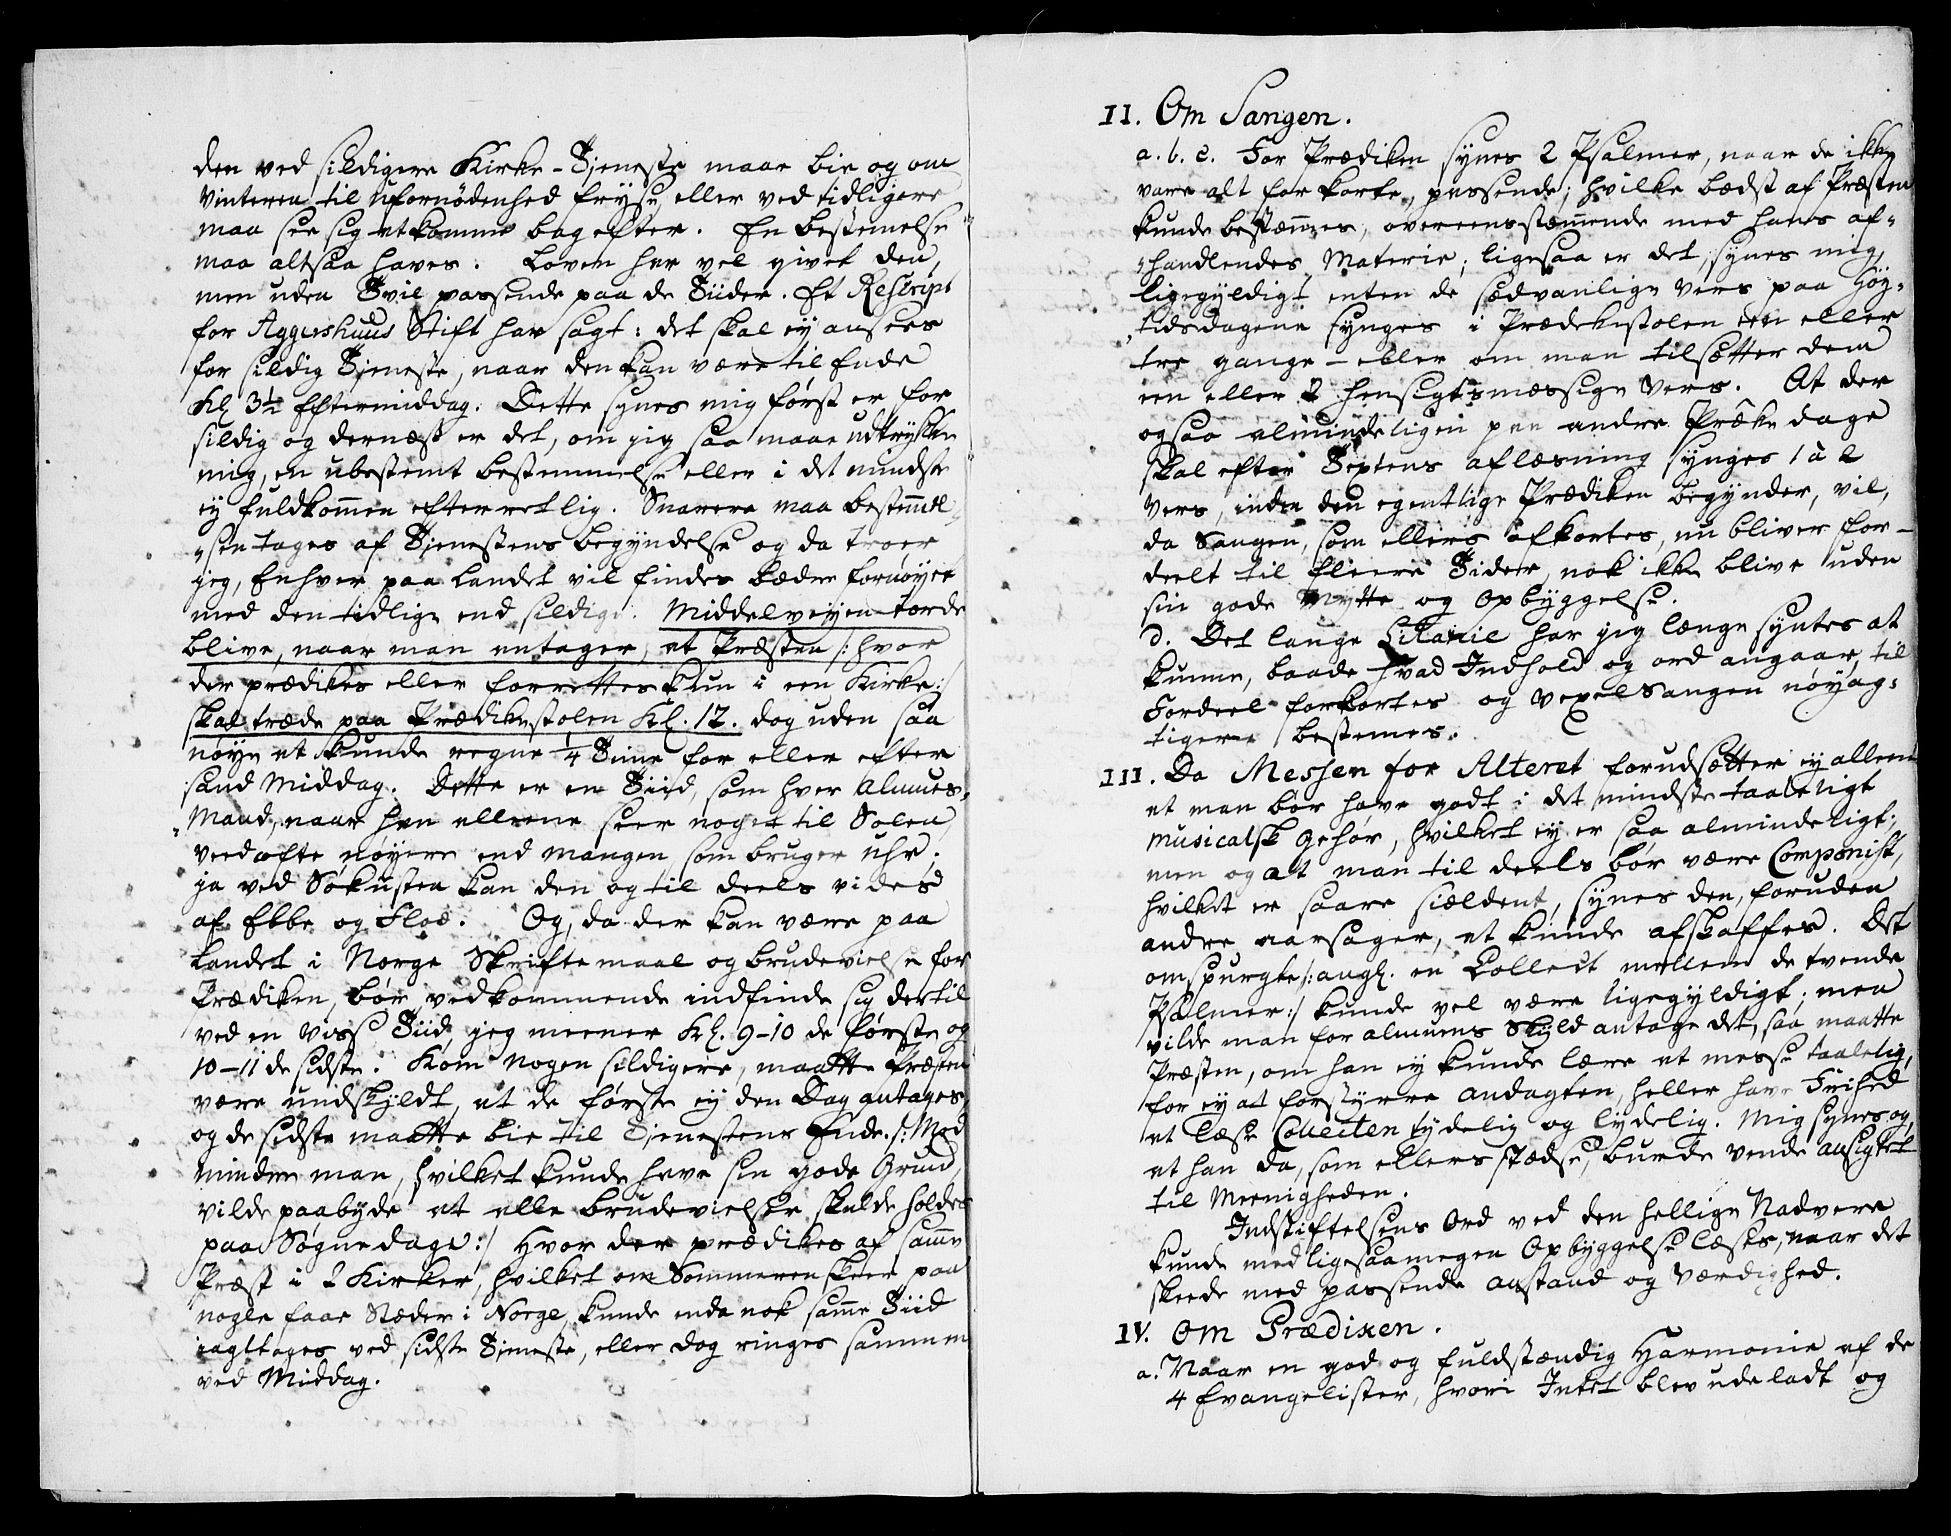 den ved sildigere Kirke-Tjeneste maae bie og om
Vinteren til ufornødenhed fryse eller ved tidligere
maa see sig at komme bag efter. En bestemelse
maa altsaa haves. Loven har vel givet den,
men uden Tvil passende paa de Tiider. Et Rescript
for Aggershuus Stift har sagt: det skal ey ansees
for sildig Tjeneste, naar den kan være til Ende
Kl 3½ Eftermiddag. Dette synes mig først er for
sildig og dernæst er det, om jeg saa maae udtrykke
mig, en ubestemt bestemmelse eller i det mindste
ey fuldkommen efterretlig. Snarere maa bestemmel-
sen tages af Tjenestens begyndelse og da troer
jeg, Enhver paa Landet vil findes bædre fornøyet
med den tidlige end sildige. Middelveyen torde
blive, naar man antager, at Præsten /: hvor
der prædikes eller forrettes kun i een Kirke :/
skal træde paa Prædikestolen Kl. 12. dog uden saa
nøye at kunde regne ¼ Time for eller efter
sand Middag. Dette er en Tiid, som hver Almues-
Mand, naar han allene seer noget til Solen,
veed ofte nøyere end mangen, som bruger Uhr.
ja ved Søkusten kan den og til deels vides
af Ebbe og Flod. Og, da der kan være paa
Landet i Norge Skriftemaal og brudevielse for
Prædiken, bør vedkommende indfinde sig dertil
ved en viss Tiid, jeg meener Kl. 9-10 de første og
10-11 de sidste. Kom nogen sildigere, maatte Præsten
være undskyldt, at de første ey den Dag antages,
og de sidste maatte bie til Tjenestens Ende. /: Med
mindre man, hvilket kunde have sin gode Grund,
vilde paabyde at alle brudevielser skulde holdes
paa Søgnedage :/ Hvor der prædikes af samme
Præst i 2 Kirker, hvilket om Sommeren skeer paa
nogle faae Stæder i Norge, kunde enda nok samme Tiid
iagttages ved sidste Tjeneste, eller dog ringes sammen
ved Middag.
II. Om Sangen.
a. b. c. For Prædiken synes 2 Psalmer, naar de ikke
vare alt for korte, passende; hvilke bædst af Præsten
kunde bestemmes, overeensstemmende med hans af-
handlendes Materie; ligesaa er det, synes mig,
ligegyldigt enten de sædvanlige Vers paa Høy-
tidsdagene synges i Prædikestolen een eller
tre gange - eller om man tilsætter dem
een eller 2 hensigtsmæssige Vers. At der
ogsaa almindeligen paa andre Prækedage
skal efter Textens aflæsning synges 1 à 2
Vers, inden den egentlige Prædiken begynder, vil,
da Sangen, som ellers afkortes, nu bliver for-
deelt til fleere Tider, nok ikke blive uden
sin gode Nytte og Opbyggelse.
d. Det lange Litanie har jeg længe syntes at
kunne, baade hvad Indhold og ord angaaer, til
Fordeel forkortes og Vexelsangen nøyag-
tigere bestemes.
III. Da Messen for Alteret forudsætter ey allene
at man bør have godt i det mindste taaleligt
Musicalsk Gehør, hvilket ey er saa almindeligt;
men og at man til deels bør være Componist,
hvilket er saare sieldent, synes den, foruden
andre aarsager, at kunde afskaffes. Det
omspurgte /: angl. en Collect mellem de tvende
Psalmer :/ kunde vel være ligegyldigt; men
vilde man for almuens Skyld antage det, saa maatte
Præsten, om han ey kunde lære at messe taalelig,
for ey at forstyrre Andagten, heller have Friehed
at læse Collecten tydelig og lydelig. Mig synes og,
at han da, som ellers stædse, burde vende Ansigtet
til Meenigheden.
Indstiftelsens Ord ved den hellige Nadvere
kunde med ligesaa megen Opbyggelse læses, naar det
skeede med passende Anstand og Værdighed.
IV. Om Prædiken.
a. Naar en god og fuldstændig Harmonie af de
4 Evangelister, hvori Intet blev udeladt og